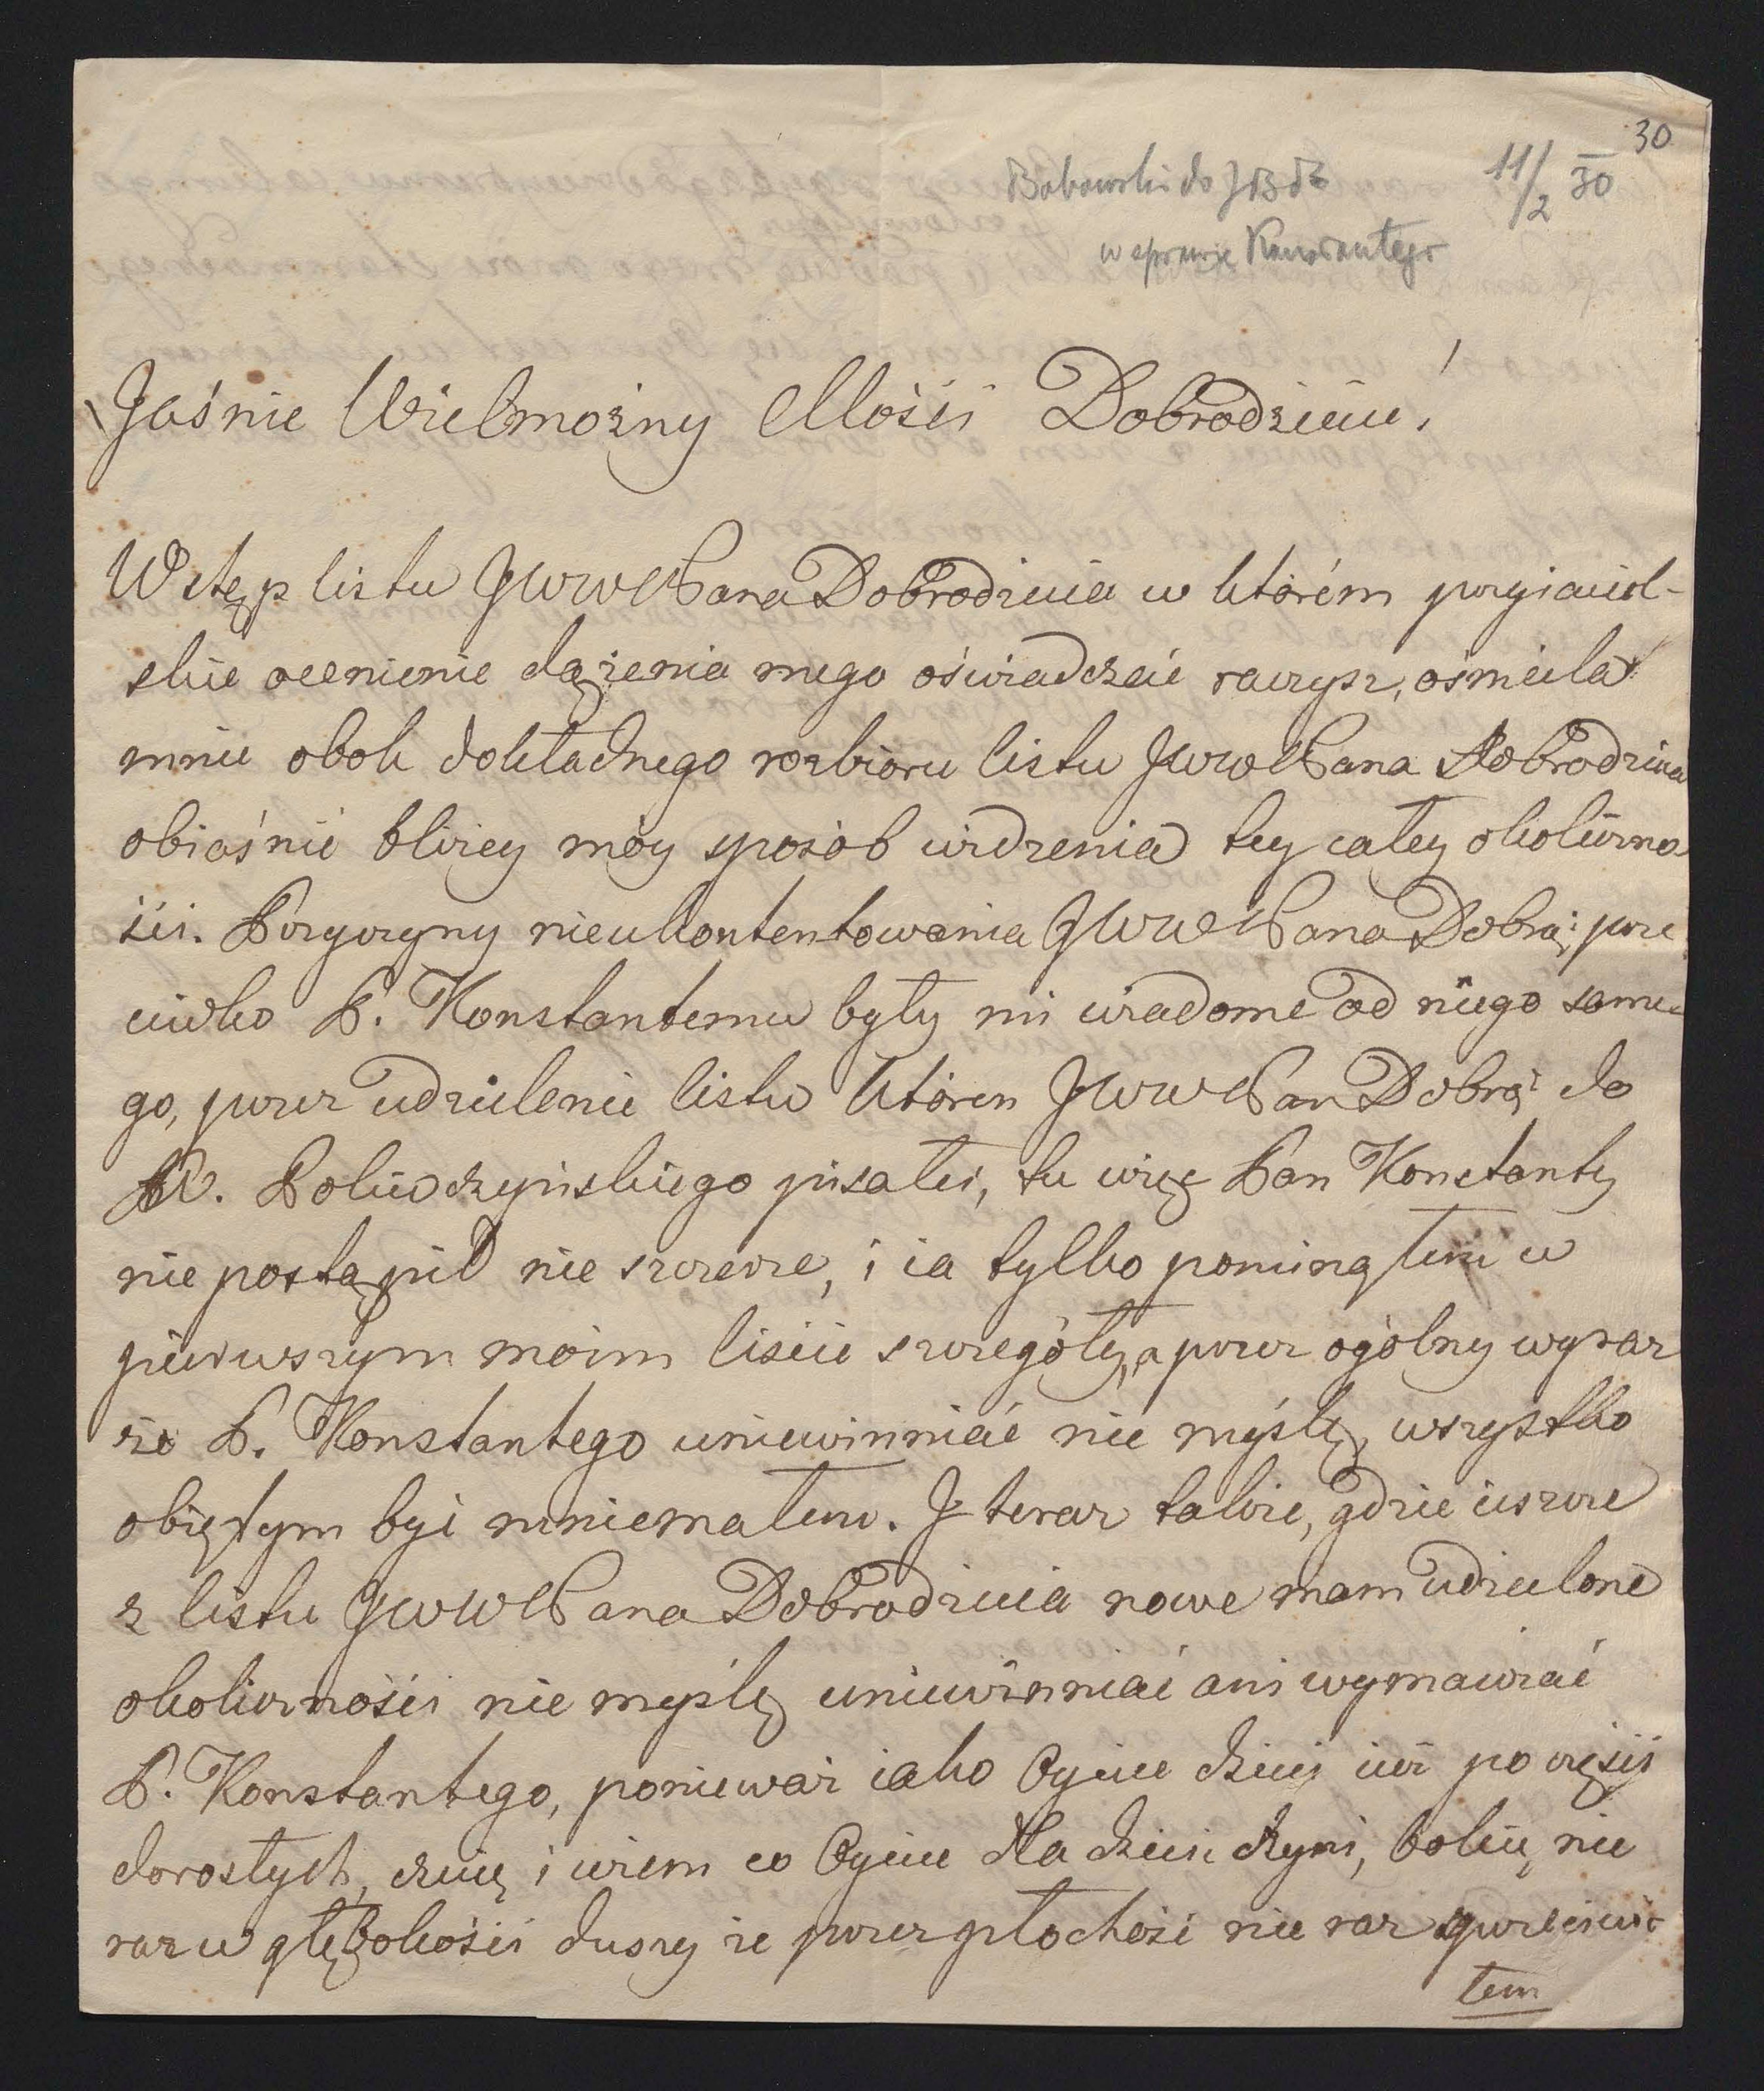 30
11/2 30
Bobowski do JBdt
w sprawie Konstantego
Jaśnie Wielmożny Mośći Dobrodzieiu!
Wstęp listu JWWPana Dobrodzieia w którém przyiaciel-
skie ocenienie dążenia mego oświadczać raczysz, ośmiela
mnie obok dokładnego rozbioru listu JWWPana Dobrodzieia
obiaśnić bliżey móy sposób widzenia tey całey okoliczno
śći. Przyczyny nieukontentowania JWWPana Dobra: prze
ciwko P. Konstantemu były mi wiadome od niego same-
go, przez udzielenie listu któren JWWPan Dobrą: do
W. Poliwczyńskiego pisałeś, tu więc Pan Konstanty
nie postąpił nie szczerze, i ia tylko pominąłem w
pierwszym moim liście szczegóły, a przez ogólny wyraz
że P. Konstantego uniewinniać nie myślę, wszystko
obiętym być mniemałem. J teraz także, gdzie ieszcze
z listu JWWPana Dobrodzieia nowe mam udzielone
okolicznośći nie myślę uniewinniać ani wymawiać
P. Konstantego, ponieważ iako Oyciec dzieci iuż po części
dorosłych, czuię i wiem co Oyciec dla dzieci czyni, boleię nie
raz w głębokośći duszy że przez płochość nie raz sprzeciwia
łem